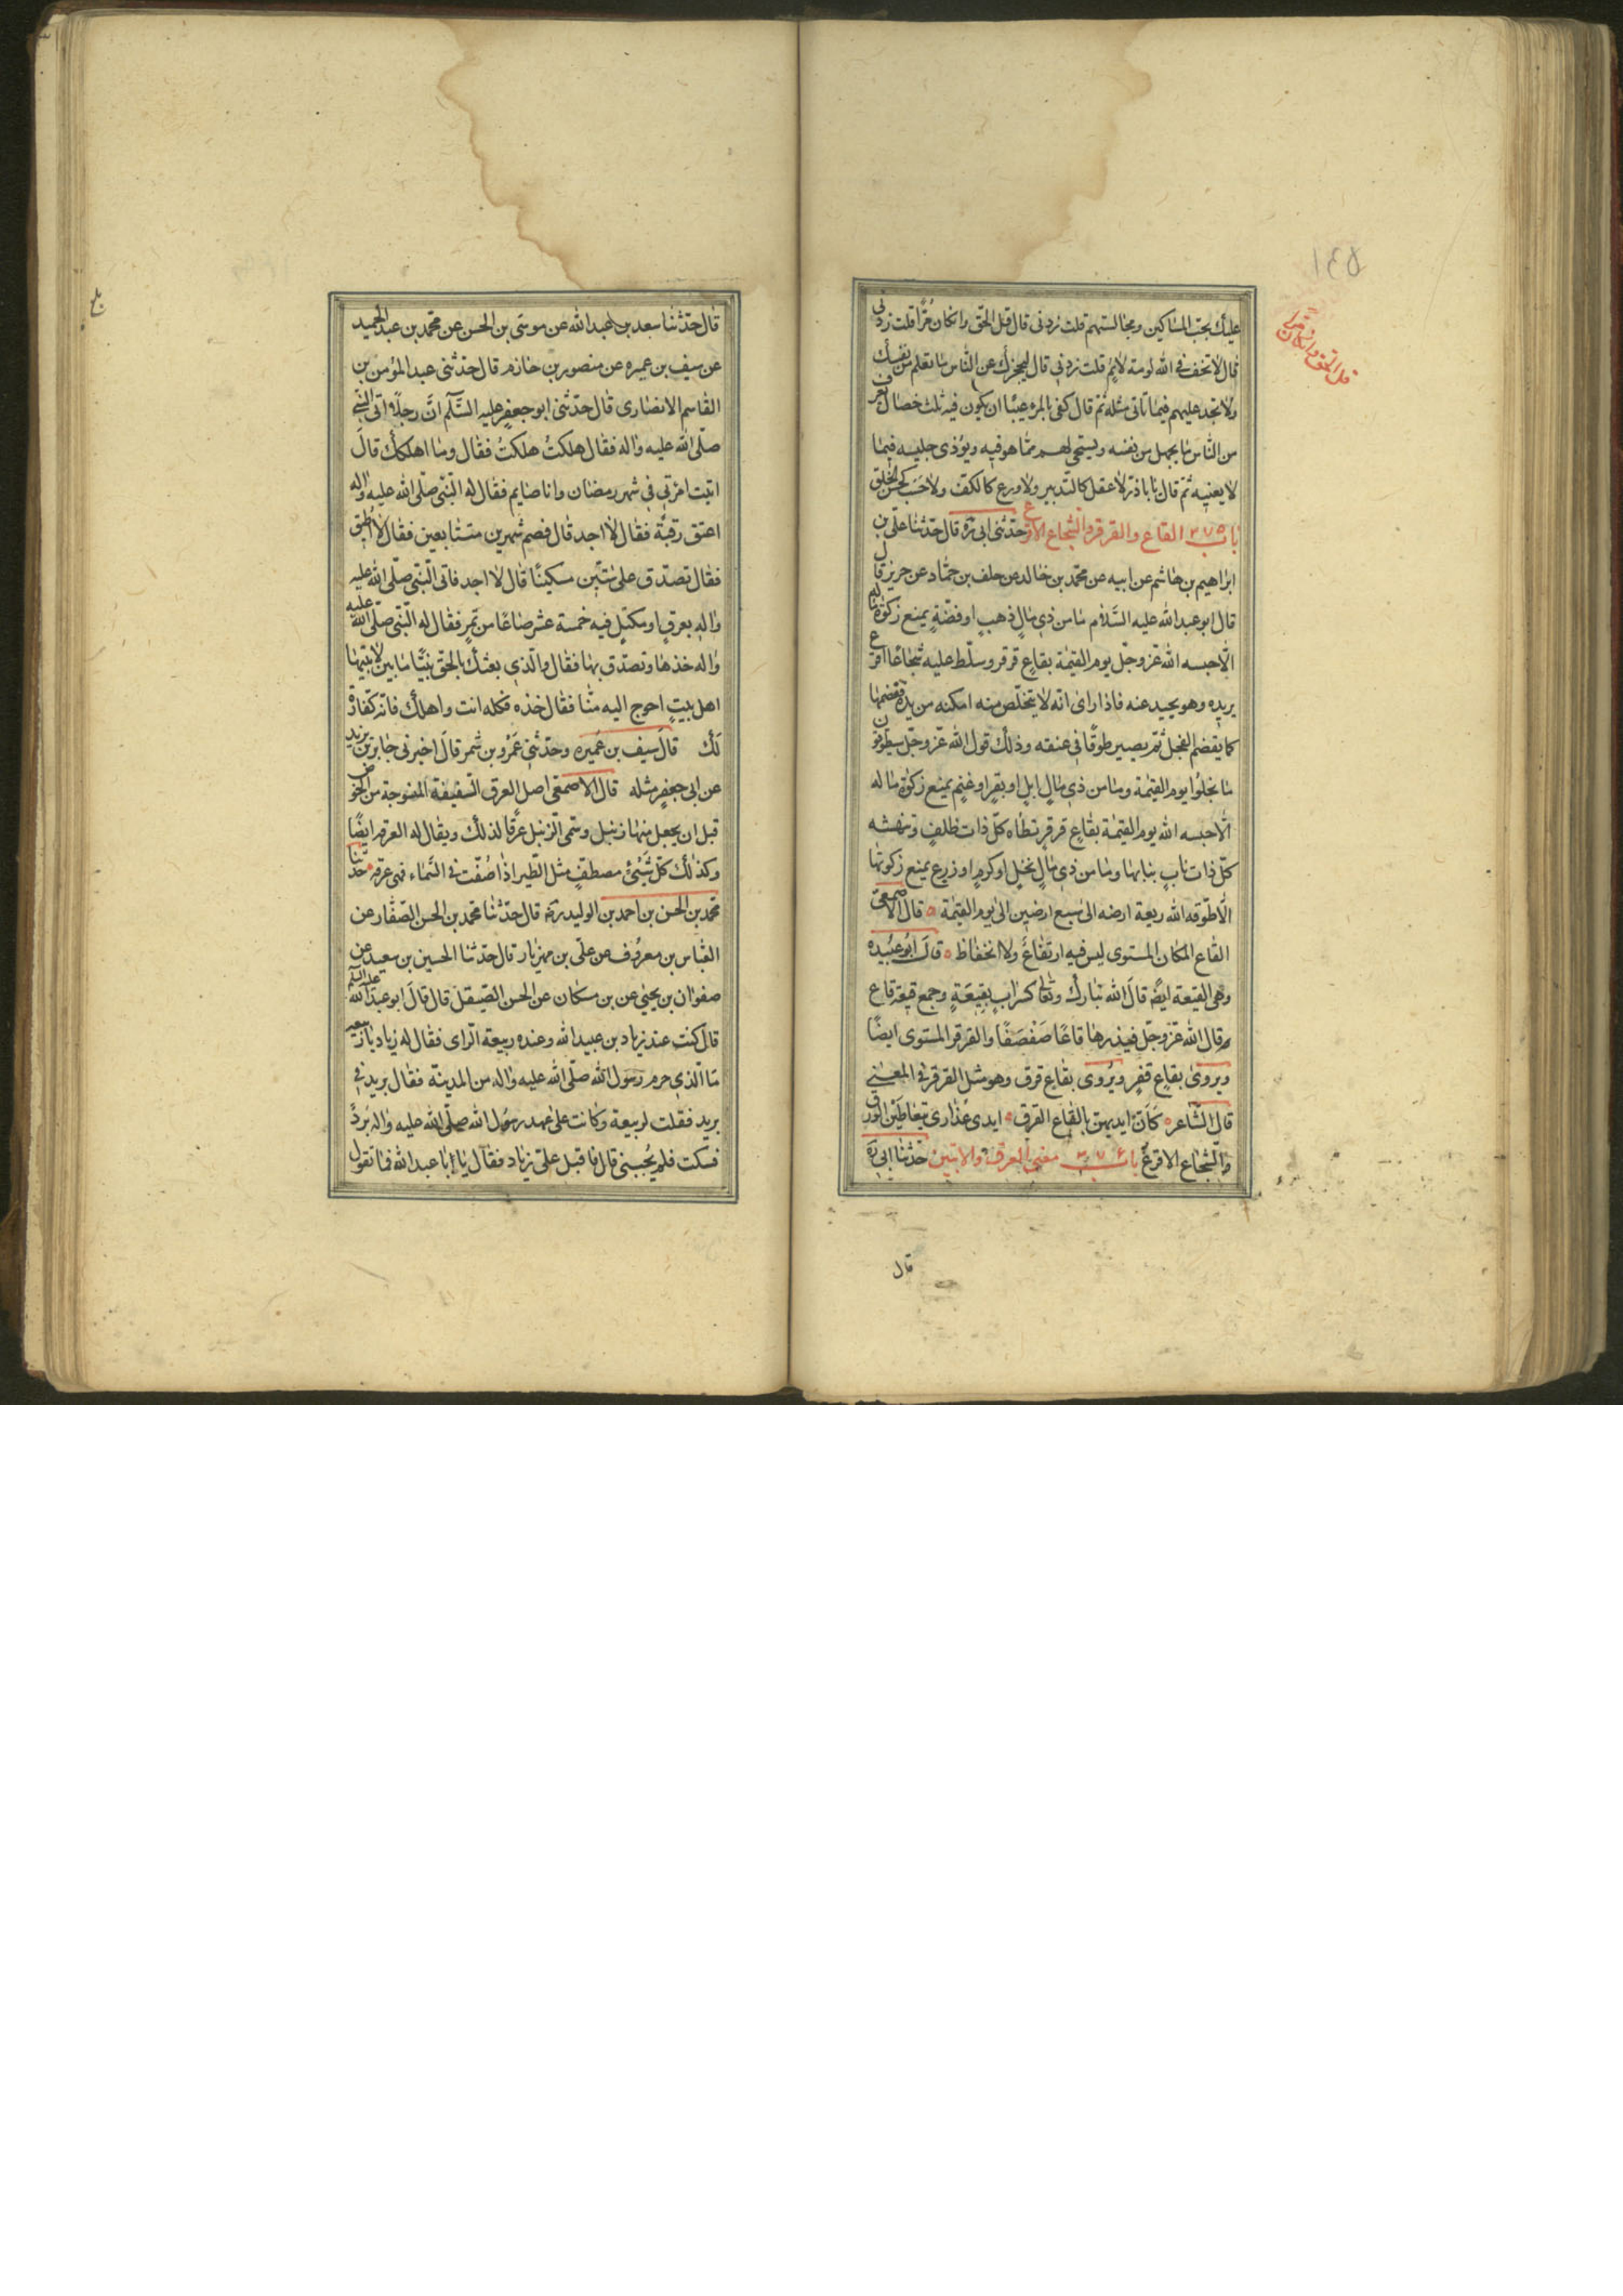 عليك بحبّ المساكين ومجالستهم قلت زدنى قال قل الحق وانكان مرّا قلت زدنى
قال لا تخف فى الله لومة لائم قلت زدنى قال ليحجزك عن الناس ما تعلم من نفسك
ولا تجد عليهم فيما تاتى مثله ثمّ قال كفى بالمرء عيبًا ان يكون فيه ثلث خصال يعرف
من الناس ما يجهل من نفسه ويستحيى لهم ممّا هو فيه ويؤذى جليسه فيما
لا يعنيه ثمّ قال يا باذرّ لا عقل كالتدبير ولا ورع كالكفّ ولا حسب كحسن الخلق
باب ٣٧٥ القاع والقرقره والشجاع الاقرع حدّثنى ابى ره قال حدّثنا علىّ بن
ابراهيم بن هاشم عن ابيه عن محمّد بن خالد عن خلف بن حمّاد عن حريز قال
قال ابو عبد الله عليه السّلام ما من ذى مالٍ ذهبٍ او فضّةٍ يمنع زكوة ماله
الّا حبسه الله عزّ وجلّ يوم القيٰمة بقاعٍ قرقر وسلّط عليه شجاعًا اقرع
يريده وهو يحيد عنه فاذا راى انّه لا يتخلّص منه امكنه من يده فقضمها
كما يقضم الفجل ثمّ يصير طوقًا فى عنقه وذلك قول الله عزّ وجلّ سيطوّقون
ما بخلوا يوم القيٰمة وما من ذى مالٍ ابلٍ او بقرٍ او غنمٍ يمنع زكوة ماله
الّا حبسه الله يوم القيٰمة بقاعٍ قرقرٍ تطاه كلّ ذات ظلفٍ وتنهشه
كلّ ذات نابٍ بنابها وما من ذى مالٍ نخلٍ او كرمٍ او زرعٍ يمنع زكوتها
الّا طوّقه الله ريعة ارضه الى سبع ارضين الى يوم القيٰمة ۰ قال الاصمعى
القاع المكان المستوى ليس فيه ارتفاع ولا انخفاظ ۰ قال ابو عبيده
وهى القيعة ايضً قال الله تبارك وتعالى كسرابٍ بقيعةٍ وجمع قيعة قاع
وقال الله عزّ وجلّ فيذرها قاعًا صَفْصَفًا والقرقر المستوى ايضًا
ويروى بقاعٍ قفرٍ ويُروى بقاع قرق وهو مثل القرقر فى المعنى
قال الشاعر ۰ كَاَنّ ايديهنّ بالقاع القرق ۰ ايدى عذارى يتعاطين الورق
والشجاع الاقرع باب ٣٧٦ معنى العرق والابتين حدّثنا ابى ره
قال
قل الحق وانكان مرا
قال حدّثنا سعد بن عبد الله عن موسى بن الحسن عن محمّد بن عبد الحميد
عن سيف بن عميره عن منصور بن حازم قال حدّثنى عبد المؤمن بن
القاسم الانصارى قال حدّثنى ابو جعفر عليه السّلم انّ رجلاً اتى النبى
صلّى الله عليه واله فقال هلكتُ هلكتُ فقال وما اهلكك قال
اتيت امرتى فى شهر رمضان وانا صايم فقال له النّبى صلّى الله عليه واله
اعتق رقبةً فقال لا اجد قال فصم شهرين متتابعين فقال لا اُطيق
فقال تصدّق على ستّين مسكينًا قال لا اجد فاتى النّبى صلّى الله عليه
واله بعرقٍ او مكتلٍ فيه خمسة عشر صاعًا من تمرٍ فقال له النّبى صلّى الله عليه
واله خذها وتصدّق بها فقال والّذى بعثك بالحقّ نبيًّا ما بين لابتيها
اهل بيتٍ احوج اليه منّا فقال خذه فكله انت واهلك فانّه كفّارة
لك قال سيف بن عميره وحدّثنى عمرو بن شمر قال اخبرنى جابر بن يزيد
عن ابى جعفرٍ مثله قال الاصمعى اصل العرق السفيفة المنسوجة من الخوص
قبل ان يجعل منها زنبيل وسمى الزنبيل عرقًا لذلك ويقال له العرقه ايضًا
وكذلك كلّ شيئ مصطفٍّ مثل الطير اذا صُفّت فى السّماء فهى عرقه ۰ حدّثنا
محمّد بن الحسن بن احمد بن الوليد ره قال حدّثنا محمّد بن الحسن الصّفّار عن
العبّاس بن معروف عن علىّ بن مهزيار قال حدّثنا الحسين بن سعيد عن
صفوان بن يحيى عن بن مسكان عن الحسن الصّيقل قال قال ابو عبد الله عليه السلم
قال كنت عند زياد بن عبيد الله وعنده ربيعة الراى فقال له زياد يا ربيعه
ما الّذى حرم رسول الله صلّى الله عليه واله من المدينة فقال بريد فى
بريد فقلت لربيعة وكانت على عهد رسول الله صلّى الله عليه واله بُردٌ
فسكت فلم يُجبنى قال فاقبل علىّ زياد فقال يا ابا عبد الله فما تقول